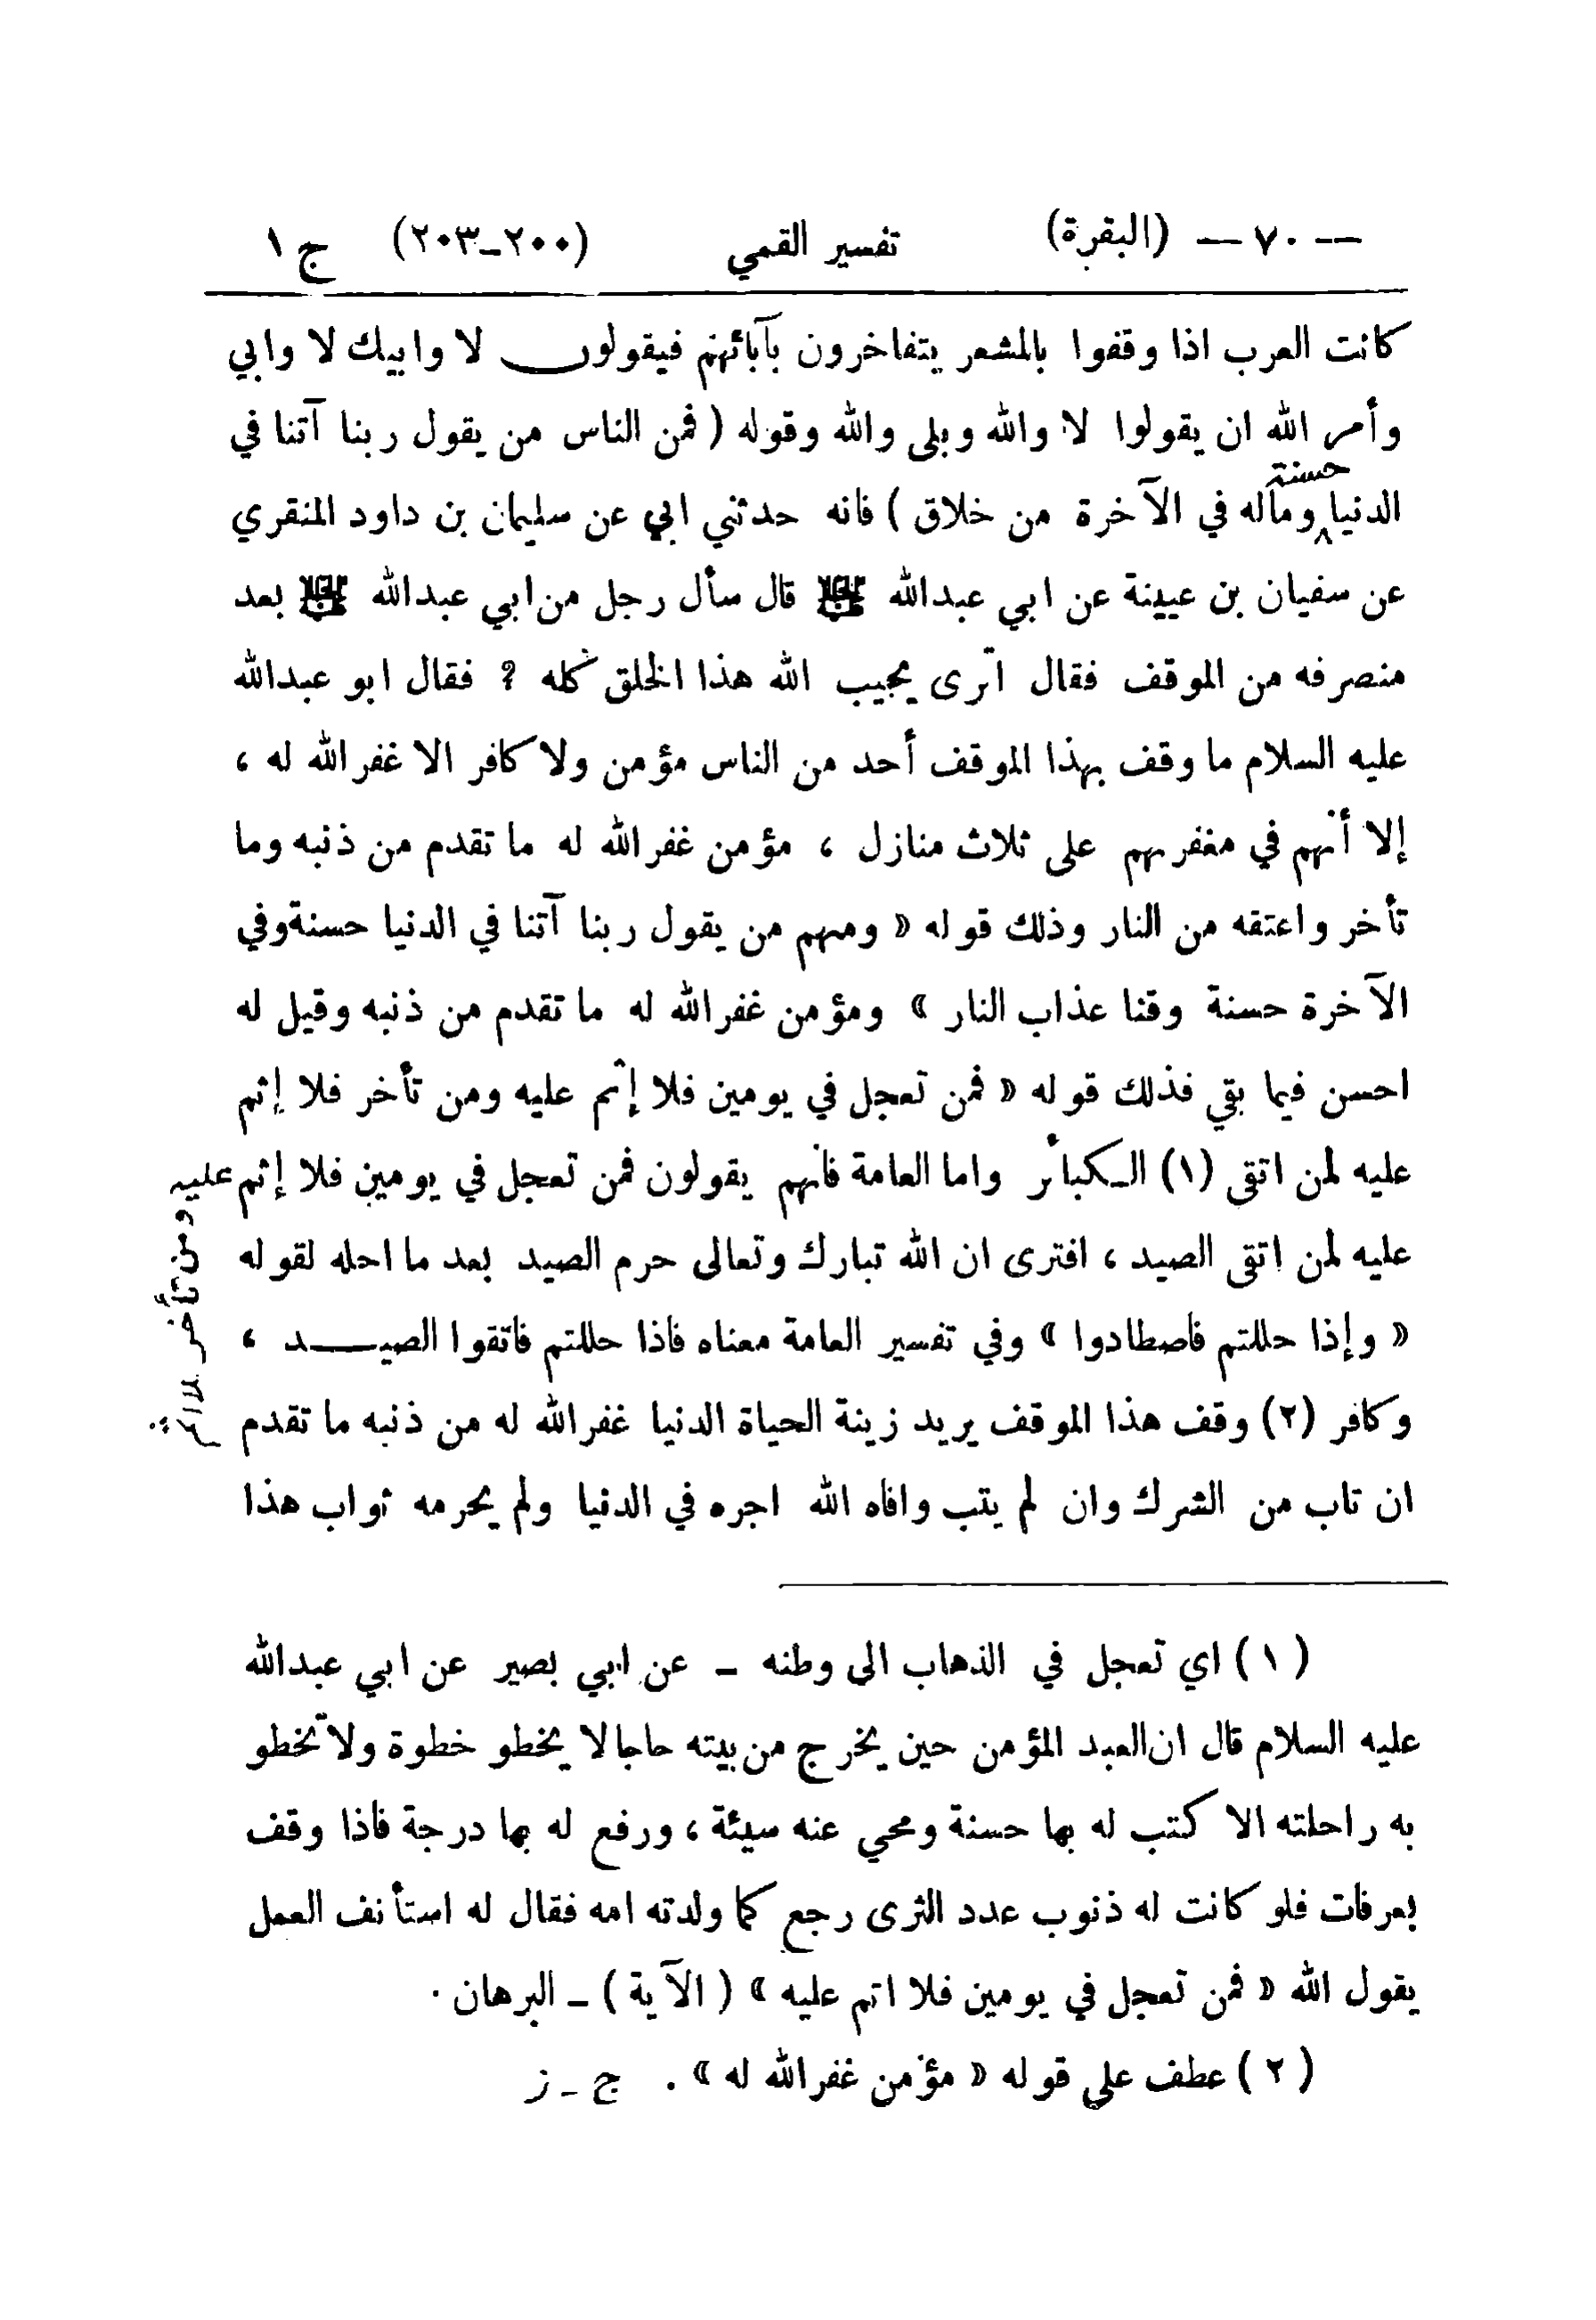 — ٧٠ — (البقرة) تفسير القمي (٢٠٠-٢٠٣) ج ١
كانت العرب اذا وقفوا بالمشعر يتفاخرون بآبائهم فيقولون لا وابيك لا وابي
وأمر الله ان يقولوا لا والله وبلى والله وقوله ( فمن الناس من يقول ربنا آتنا في
حسنة
الدنيا وماله في الآخرة من خلاق ) فانه حدثني ابي عن سليمان بن داود المنقري
عن سفيان بن عيينة عن ابي عبدالله عليه السلام قال سأل رجل من ابي عبدالله عليه السلام بعد
منصرفه من الموقف فقال اترى يجيب الله هذا الخلق كله ? فقال ابو عبدالله
عليه السلام ما وقف بهذا الموقف أحد من الناس مؤمن ولا كافر الا غفر الله له ،
إلا أنهم في مغفرتهم على ثلاث منازل ، مؤمن غفر الله له ما تقدم من ذنبه وما
تأخر واعتقه من النار وذلك قوله « ومنهم من يقول ربنا آتنا في الدنيا حسنة وفي
الآخرة حسنة وقنا عذاب النار » ومؤمن غفر الله له ما تقدم من ذنبه وقيل له
احسن فيما بقي فذلك قوله « فمن تعجل في يومين فلا إثم عليه ومن تأخر فلا إثم
عليه لمن اتقى (١) الكبائر واما العامة فانهم يقولون فمن تعجل في يومين فلا إثم عليه ومن تأخر فلا إثم
عليه لمن اتقى الصيد ، افترى ان الله تبارك وتعالى حرم الصيد بعد ما احله لقوله
« وإذا حللتم فاصطادوا » وفي تفسير العامة معناه فاذا حللتم فاتقوا الصيد ،
وكافر (٢) وقف هذا الموقف يريد زينة الحياة الدنيا غفر الله له من ذنبه ما تقدم
ان تاب من الشرك وان لم يتب وافاه الله اجره في الدنيا ولم يحرمه ثواب هذا
( ١ ) اي تعجل في الذهاب الى وطنه ــ عن ابي بصير عن ابي عبدالله
عليه السلام قال ان العبد المؤمن حين يخرج من بيته حاجا لا يخطو خطوة ولا تخطو
به راحلته الا كتب له بها حسنة ومحي عنه سيئة ، ورفع له بها درجة فاذا وقف
بعرفات فلو كانت له ذنوب عدد الثرى رجع كما ولدته امه فقال له استأنف العمل
يقول الله « فمن تعجل في يومين فلا اثم عليه » ( الآية ) ــ البرهان .
( ٢ ) عطف على قوله « مؤمن غفر الله له » . ج ـ ز